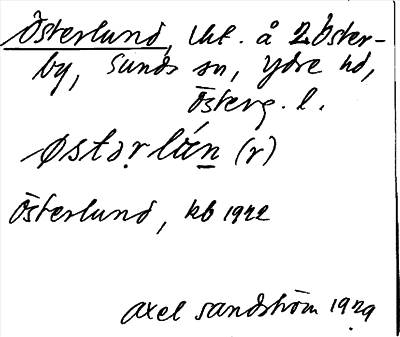 Österlund, lht. å 2 Öster-
by, Sunds sn, Ydre hd,
Österg. l.
østərlün (r)
Österlund, kb 1922
Axel Sandström 1929